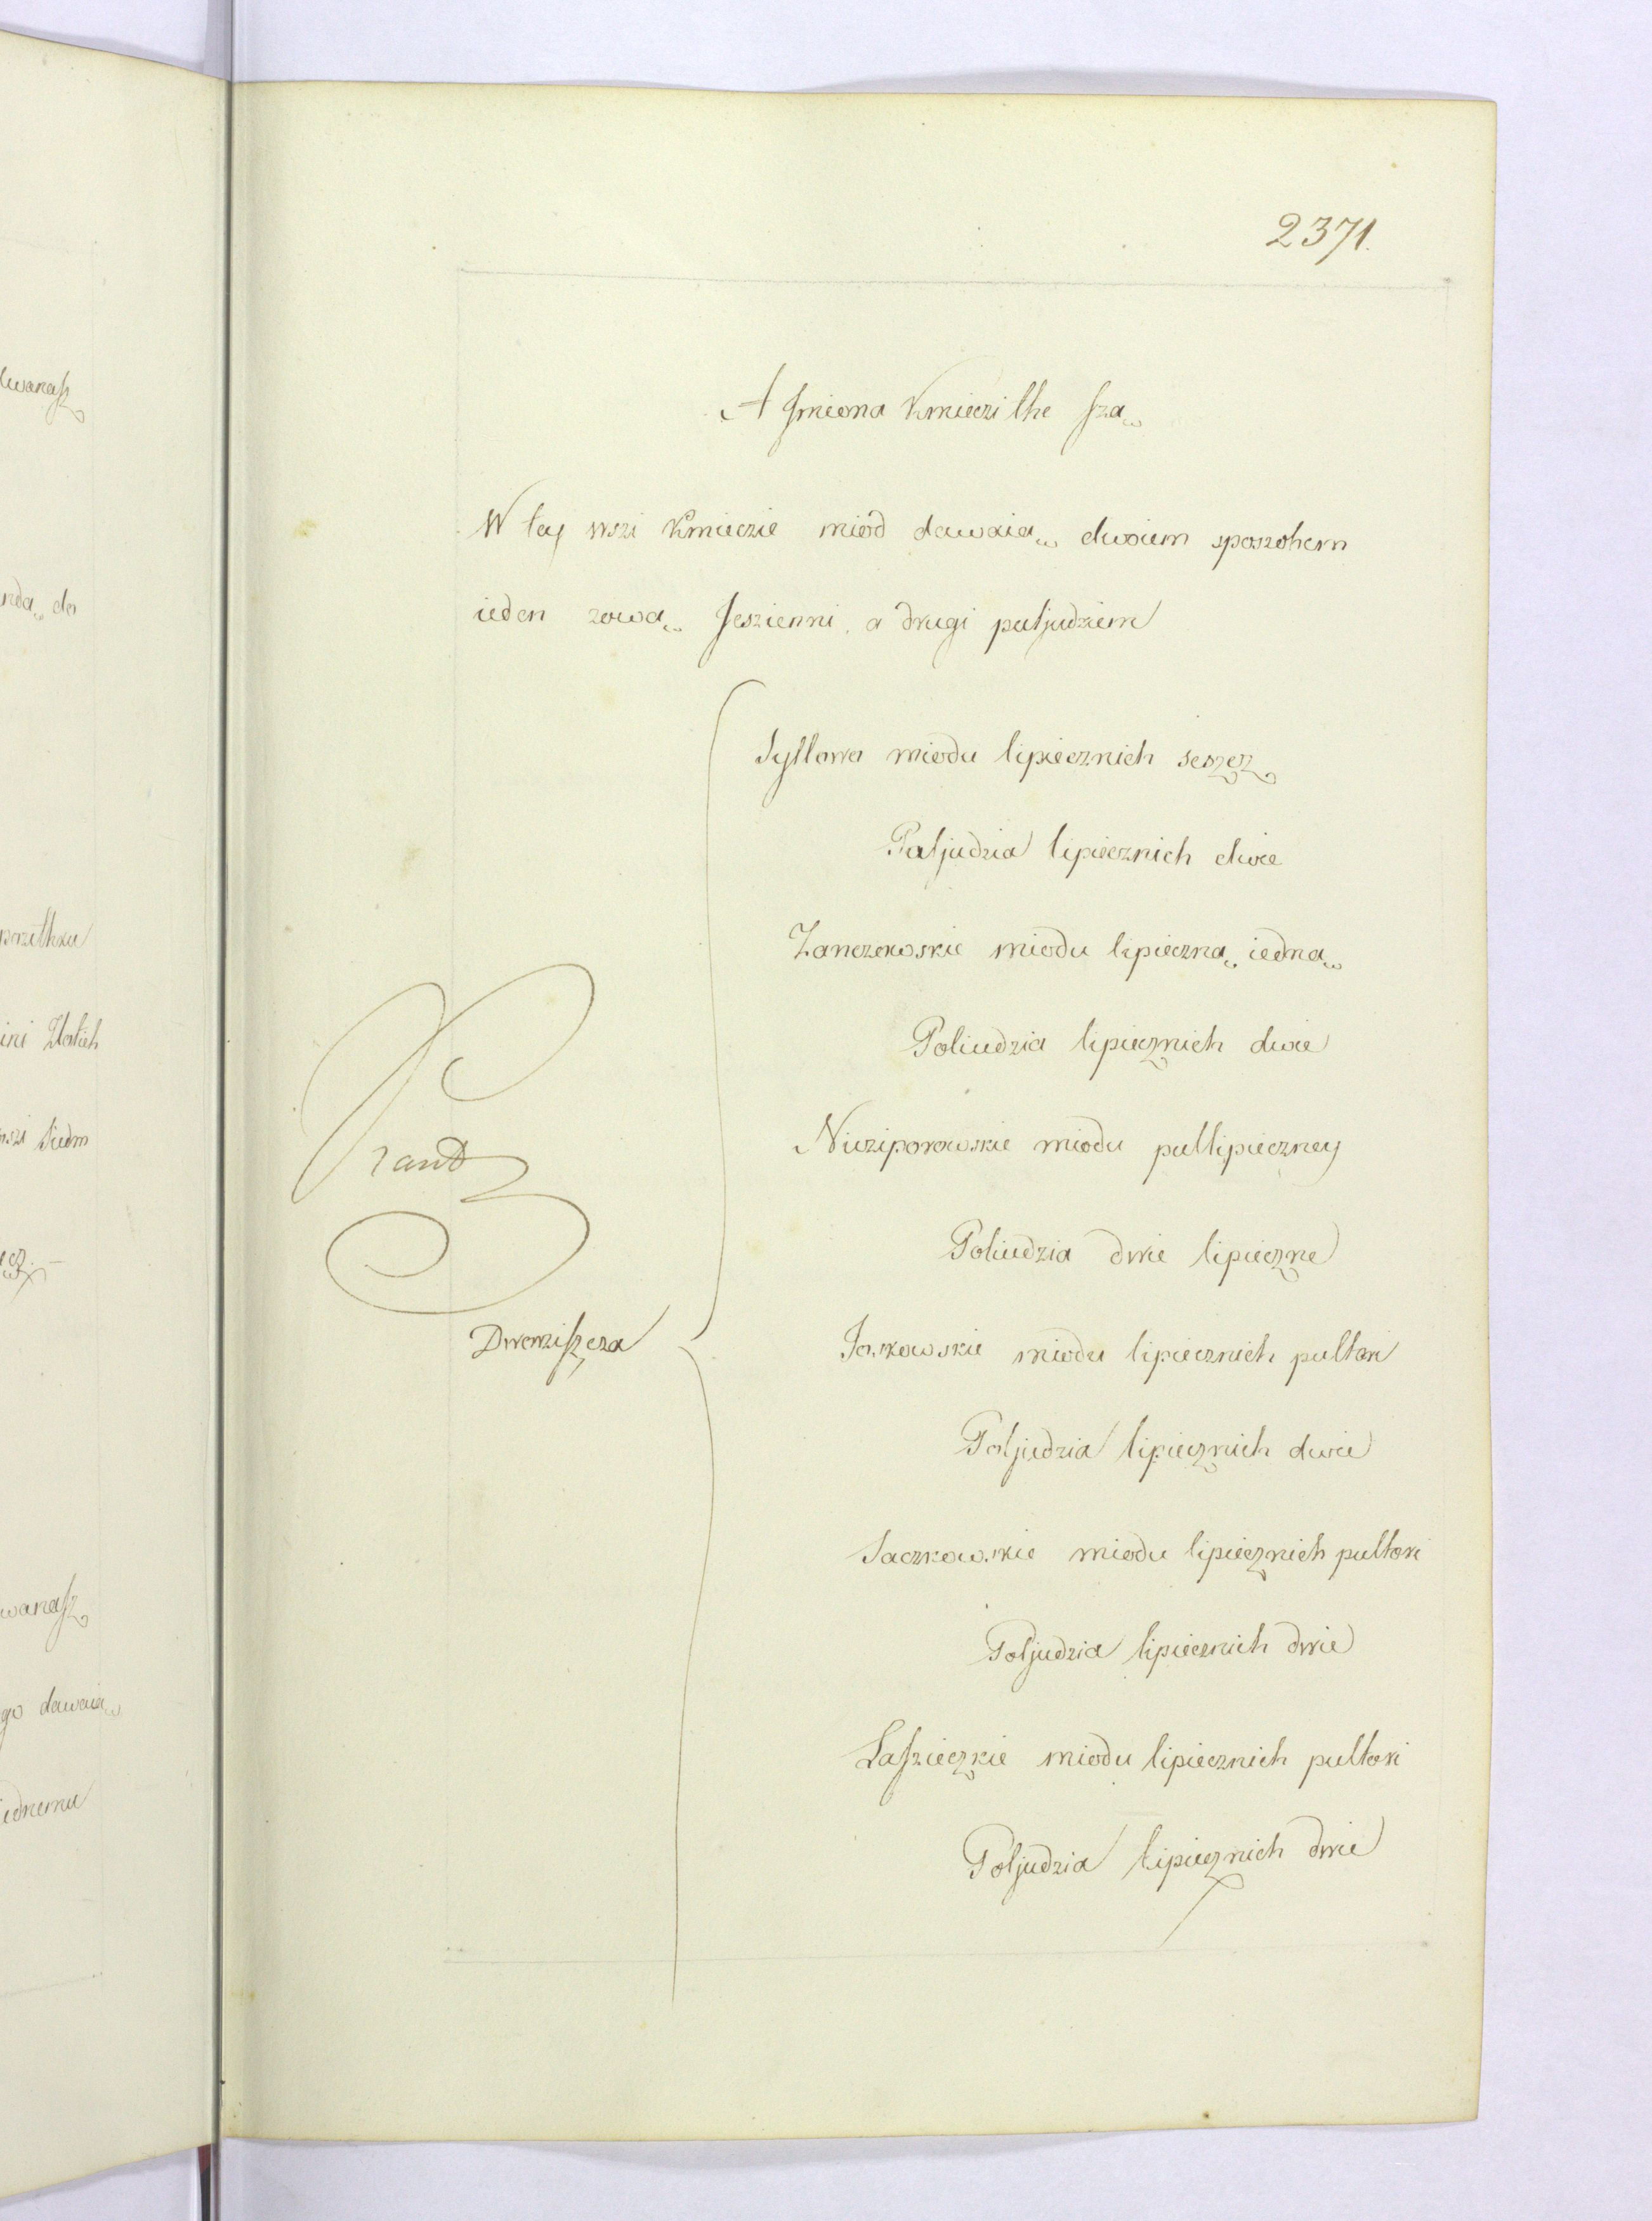 2371.
A Jmiona Kmieczi the sza˛
W tey wszi Kmieczie miód dawaia˛ dwoiem sposzobem
ieden zowa˛ Jeszienni, a drugi puljudziem
miodu lipiecznich seszcz
Poljudzia lipiecznich dwie
Zanczewskie miodu lipieczna˛ iedna˛
Poliudzia lipiecznich dwie
Nicziporowskie miodu pullipieczney
Poliudzia dwie lipieczne
Jaskowskie miodu lipiecznich pultori
Poljudzia lipiecznich dwie
Saczkowskie miodu lipiecznich pultori
Poljudzia lipiecznich dwie
Laszieczkie miodu lipiecznich pultori
Poljudzia lipiecznich dwie
Dworziszcza
dwanasz
do
Siedm
dwanasz
go dawaia˛
iednemu